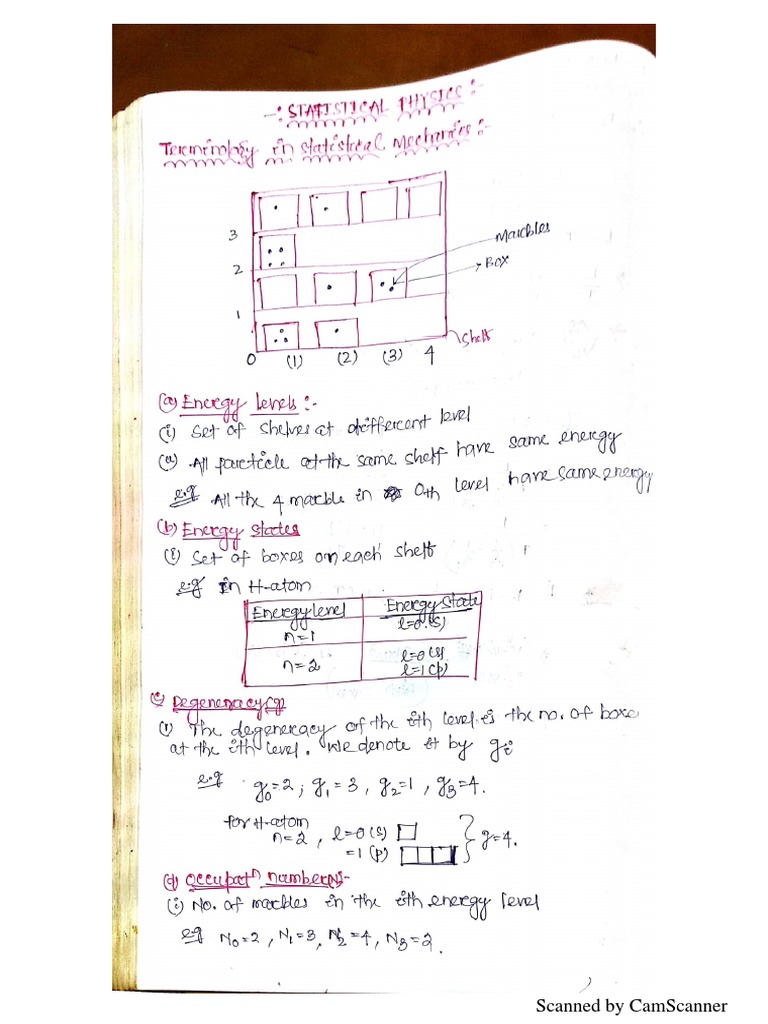 -: STATISTICAL PHYSICS :-
Terminology in statistical Mechanics :-
3
2
1
0 (1) (2) (3) 4
Marbles
Box
Shelf
(a) Energy Levels :-
(i) Set of Shelves at different level
(ii) All particle at the same shelf have same energy
e.g All the 4 marble in 0th level have same energy
(b) Energy States
(i) Set of boxes on each shelf
e.g In H-atom
Energy level Energy State
n=1 l=0 (s)
n=2 l=0 (s)
l=1 (p)
(c) Degeneracy (g)
(i) The degeneracy of the ith level is the no. of boxe
at the ith level. We denote it by gi
e.g g0=2; g1=3, g2=1, g3=4.
for H-atom
n=2, l=0 (s)
=1 (p) g=4.
(d) Occupatn number (N) :-
(i) No. of marbles in the ith energy level
eg N0=2, N1=3, N2=4, N3=2.
Scanned by CamScanner